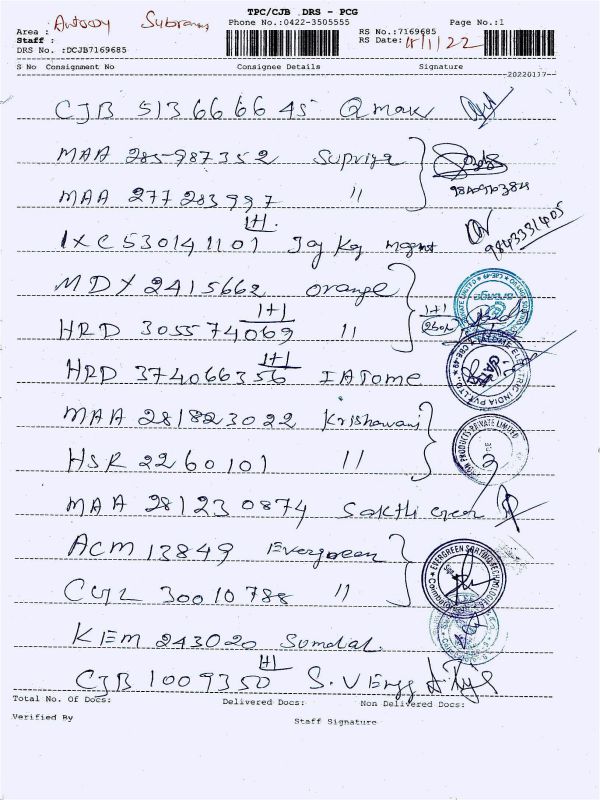 TPC/CJB DRS - PCG
Antoony Subramani
Area :
Phone No.:0422-3505555
Page No.:1
Staff :
RS No.:7169685
DRS No. :DCJB7169685
RS Date: 18/1/22
S No Consignment No Consignee Details Signature
20220117
CJB 513666645 Qmax
MAA 285987352 Supriya
984096384
MAA 277283997 "
1+1
IXC 530141101 Jay Kay mgmt
9843331405
MDX 2415662 Orange
1+1
HRD 305574069 "
1+1
HRD 374066356 IATOME
1+1
MAA 281823022 Krishaveni
HSR 2260101 "
MAA 281230874 Sakthi
ACM 13849 Evergreen
CGL 30010788 "
KEM 243020 Sumdial
CJB 1009350 S.V Engg
1+1
Total No. Of Docs: Delivered Docs: Non Delivered Docs:
Verified By
Staff Signature